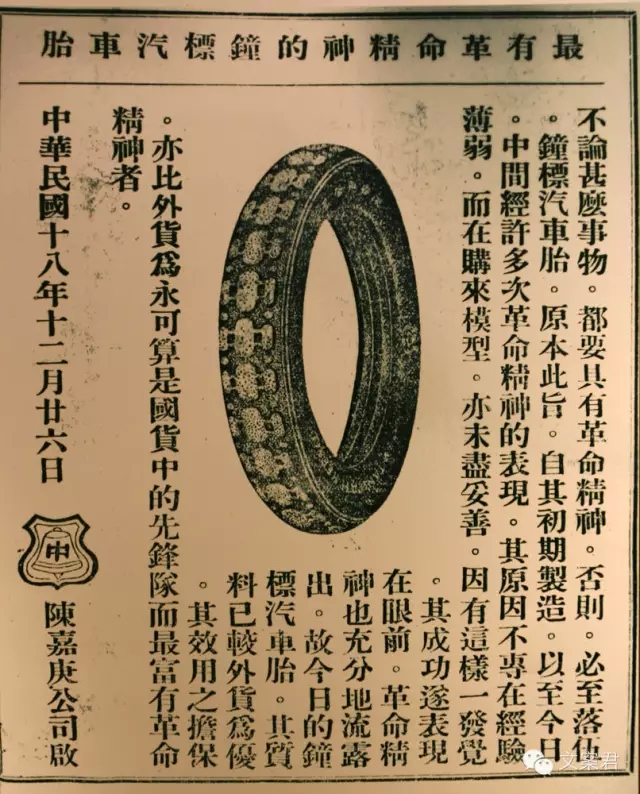 最有革命精神的鐘標汽車胎
不論甚麼事物。都要具有革命精神。否則。必至落伍
。鐘標汽車胎。原本此旨。自其初期製造。以至今日
。中間經許多次革命精神的表現。其原因不專在經驗
薄弱。而在購來模型。亦未盡妥善。因有這樣一發覺
。其成功遂表現
在眼前。革命精
神也充分地流露
出。故今日的鐘
標汽車胎。其質
料已較外貨爲優
。其效用之擔保
。亦比外貨爲永可算是國貨中的先鋒隊而最富有革命
精神者。
中華民國十八年十二月廿六日
中
陳嘉庚公司啟
文案君